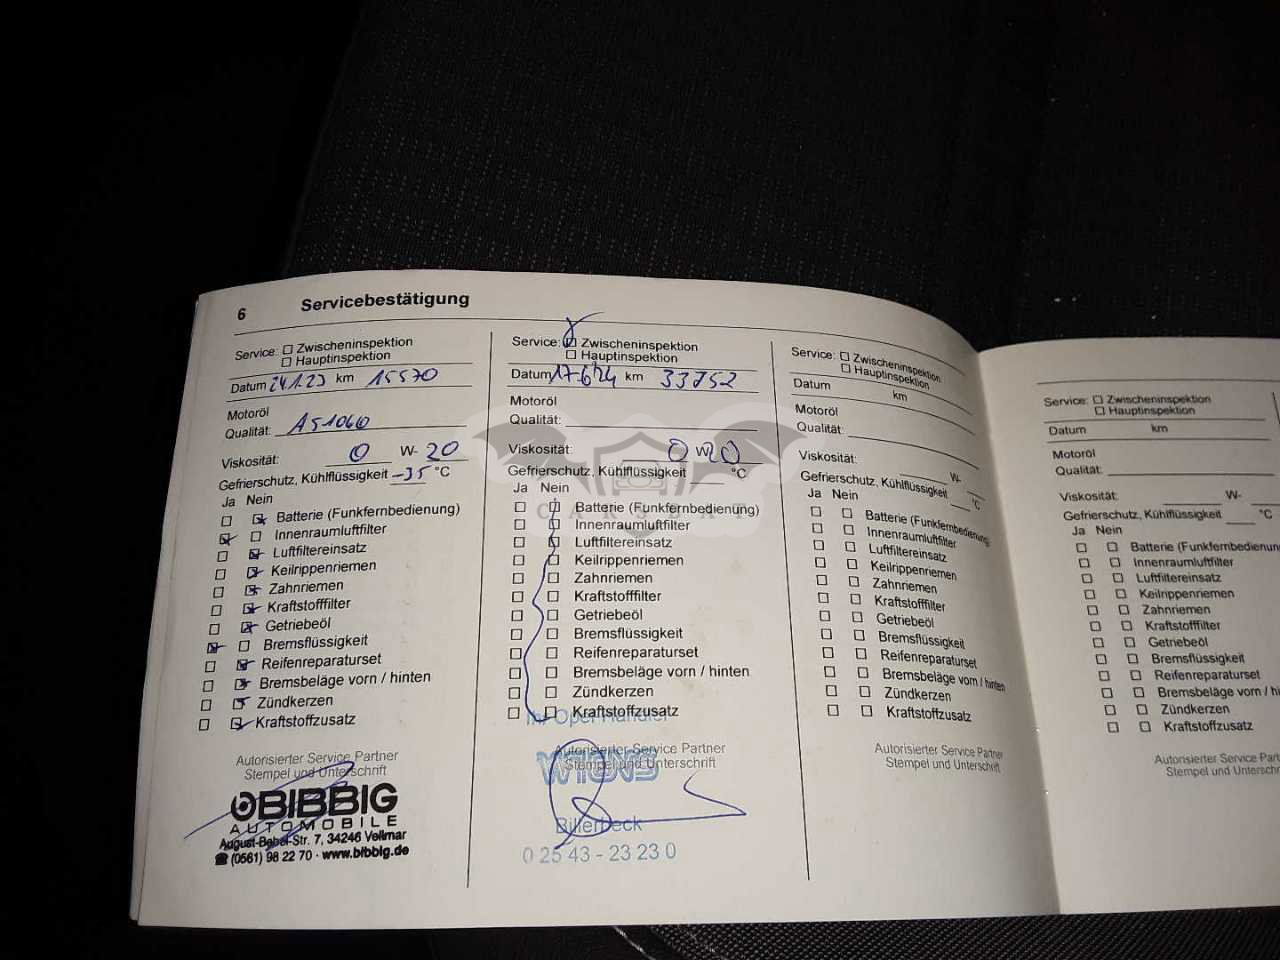 6 Servicebestätigung
Service: Zwischeninspektion
Hauptinspektion
Datum 24.1.23 km 15570
Motoröl
Qualität:
Viskosität: 0 W- 20
Gefrierschutz, Kühlflüssigkeit -35 °C
Ja Nein
Batterie (Funkfernbedienung)
Innenraumluftfilter
Luftfiltereinsatz
Keilrippenriemen
Zahnriemen
Kraftstofffilter
Getriebeöl
Bremsflüssigkeit
Reifenreparaturset
Bremsbeläge vorn / hinten
Zündkerzen
Kraftstoffzusatz
Autorisierter Service Partner
Stempel und Unterschrift
BIBBIG
AUTOMOBILE
August-Bebel-Str. 7, 34246 Vellmar
(0561) 98 22 70 · www.bibbig.de
Service: Zwischeninspektion
Hauptinspektion
Datum 17.6.24 km 33752
Motoröl
Qualität:
Viskosität: 0 W- 20
Gefrierschutz, Kühlflüssigkeit °C
Ja Nein
Batterie (Funkfernbedienung)
Innenraumluftfilter
Luftfiltereinsatz
Keilrippenriemen
Zahnriemen
Kraftstofffilter
Getriebeöl
Bremsflüssigkeit
Reifenreparaturset
Bremsbeläge vorn / hinten
Zündkerzen
Kraftstoffzusatz
Ihr Opel Händler
Autorisierter Service Partner
Stempel und Unterschrift
Billerbeck
0 25 43 - 23 23 0
Service: Zwischeninspektion
Hauptinspektion
Datum km
Motoröl
Qualität:
Viskosität: W-
Gefrierschutz, Kühlflüssigkeit °C
Ja Nein
Batterie (Funkfernbedienung
Innenraumluftfilter
Luftfiltereinsatz
Keilrippenriemen
Zahnriemen
Kraftstofffilter
Getriebeöl
Bremsflüssigkeit
Reifenreparaturset
Bremsbeläge vorn / hinten
Zündkerzen
Kraftstoffzusatz
Autorisierter Service Partner
Stempel und Unterschrift
Service: Zwischeninspektion
Hauptinspektion
Datum km
Motoröl
Qualität:
Viskosität: W-
Gefrierschutz, Kühlflüssigkeit °C
Ja Nein
Batterie (Funkfernbedienun
Innenraumluftfilter
Luftfiltereinsatz
Keilrippenriemen
Zahnriemen
Kraftstofffilter
Getriebeöl
Bremsflüssigkeit
Reifenreparaturset
Bremsbeläge vorn / hi
Zündkerzen
Kraftstoffzusatz
Autorisierter Service Pa
Stempel und Untersch